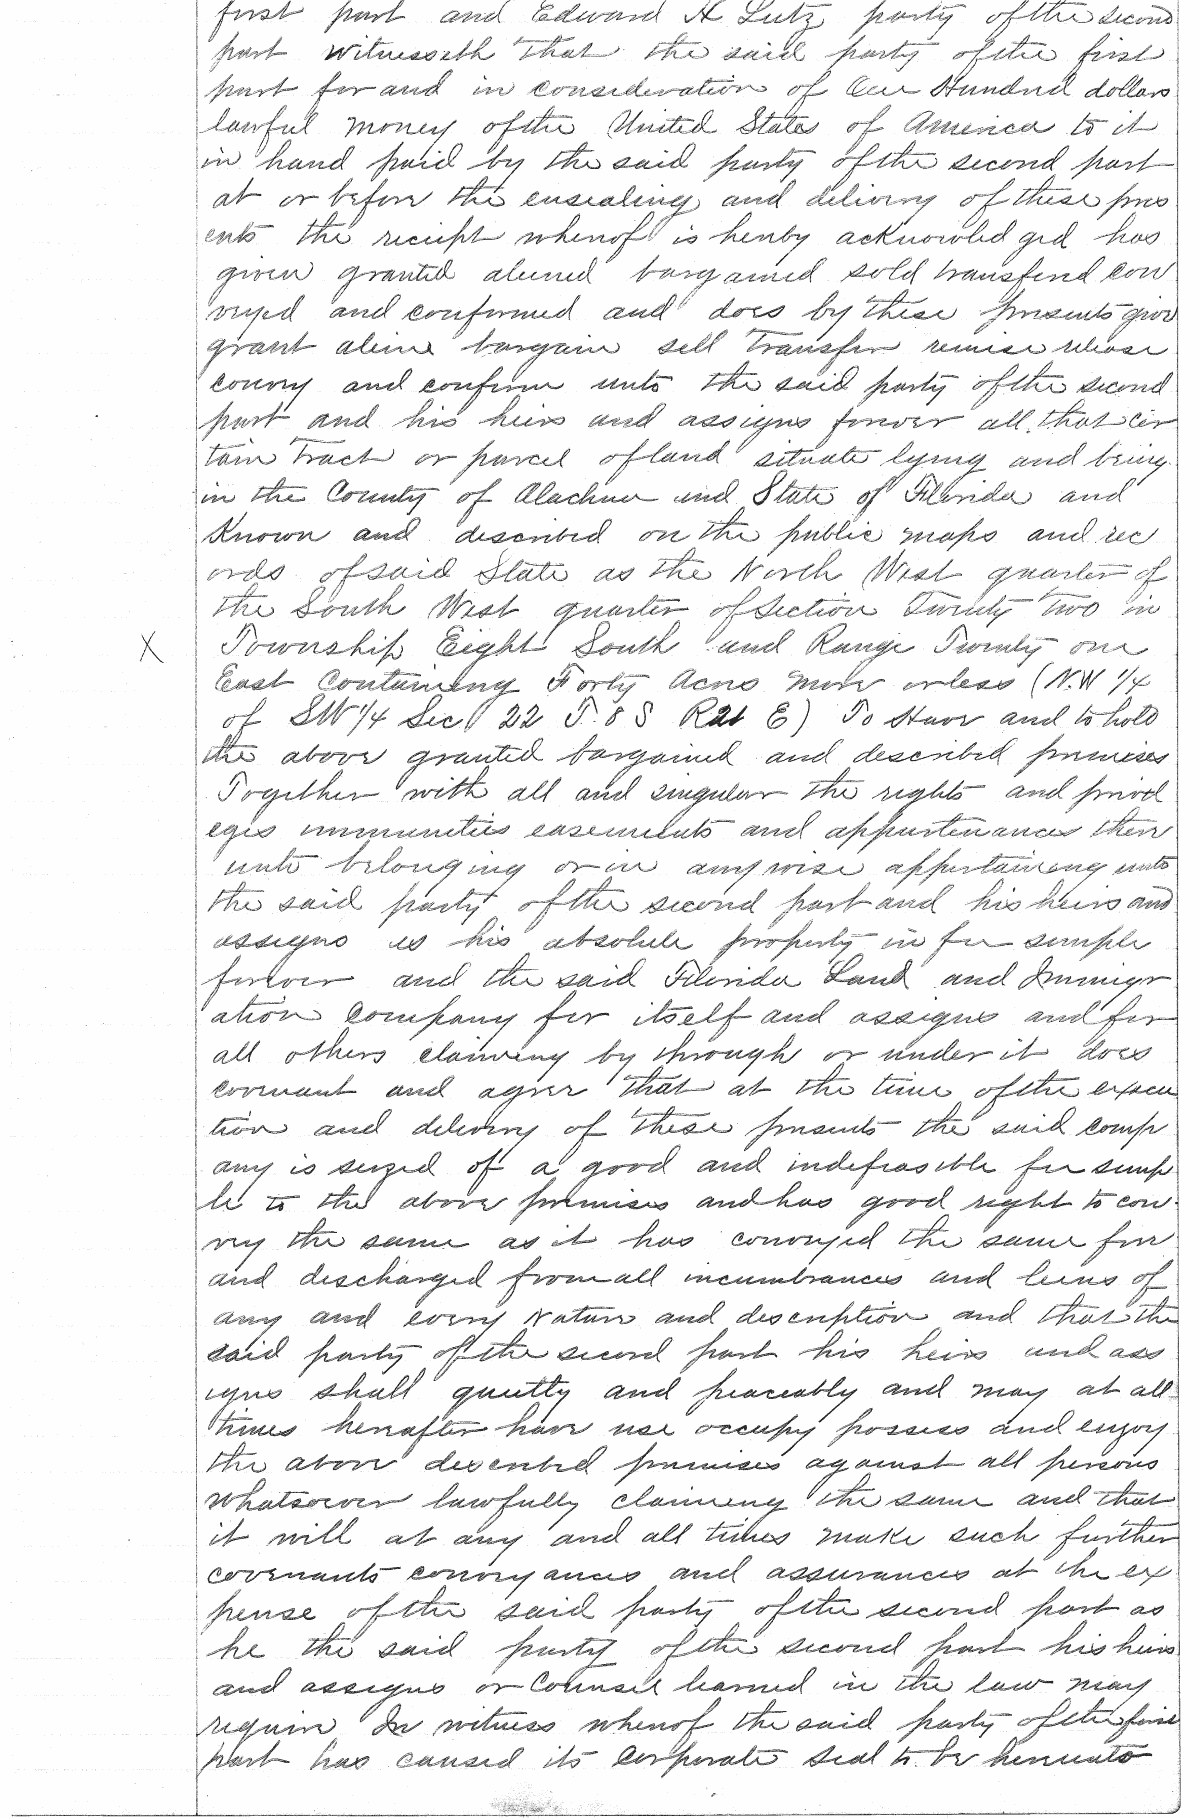 first part and Edward H Lutz party of the second
part witnesseth that the said party of the first
part for and in consideration of One Hundred dollars
lawful money of the United States of America to it
in hand paid by the said party of the second part
at or before the ensealing and delivery of these pres
ents the receipt whereof is hereby acknowledged has
given granted aliened bargained sold transferred con
veyed and confirmed and does by these presents give
grant aliene bargain sell transfer remise release
convey and confirm unto the said party of the second
part and his heirs and assigns forever all that cer
tain Tract or parcel of land situate lying and being
in the County of Alachua and State of Florida and
Known and described on the public maps and rec
ords of said State as the North West quarter of
the South West quarter of Section Twenty two in
X Township Eight South and Range Twenty one
East Containing Forty Acres more or less (N.W 1/4
of SW 1/4 Sec 22 T. 8 S R 21 E) To Have and to hold
the above granted bargained and described premises
Together with all and singular the rights and privil
eges immunities easements and appurtenances there
unto belonging or in anywise appertaining unto
the said party of the second part and his heirs and
assigns as his absolute property in fee simple
forever and the said Florida Land and Immigr
ation Company for itself and assigns and for
all others claiming by through or under it does
covenant and agree that at the time of the execu
tion and delivery of these presents the said comp
any is seized of a good and indefeasible fee simp
le to the above premises and has good right to con-
vey the same as it has conveyed the same free
and discharged from all incumbrances and liens of
any and every Nature and description and that the
said party of the second part his heirs and ass
igns shall quietly and peaceably and may at all
times hereafter have use occupy possess and enjoy
the above described premises against all persons
whatsoever lawfully claiming the same and that
it will at any and all times make such further
covenants conveyances and assurances at the ex
pense of the said party of the second part as
he the said party of the second part his heirs
and assigns or Counsel learned in the law may
require In witness whereof the said party of the first
part has caused its Corporate Seal to be hereunto